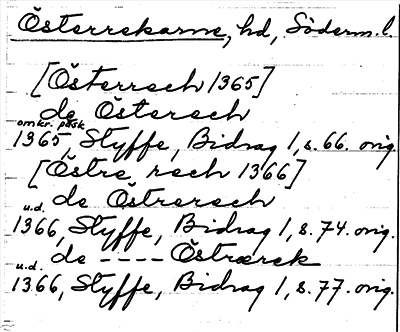 Österrekarne, hd, Söderm.l.
[Österrech 1365]
de Österech
omkr. påsk
1365, Styffe, Bidrag 1, s. 66. orig.
[Östre rech 1366]
de Östrerech
u.d.
1366, Styffe, Bidrag 1, s. 74. orig.
de ---- Östrærek
u.d.
1366, Styffe, Bidrag 1, s. 77. orig.